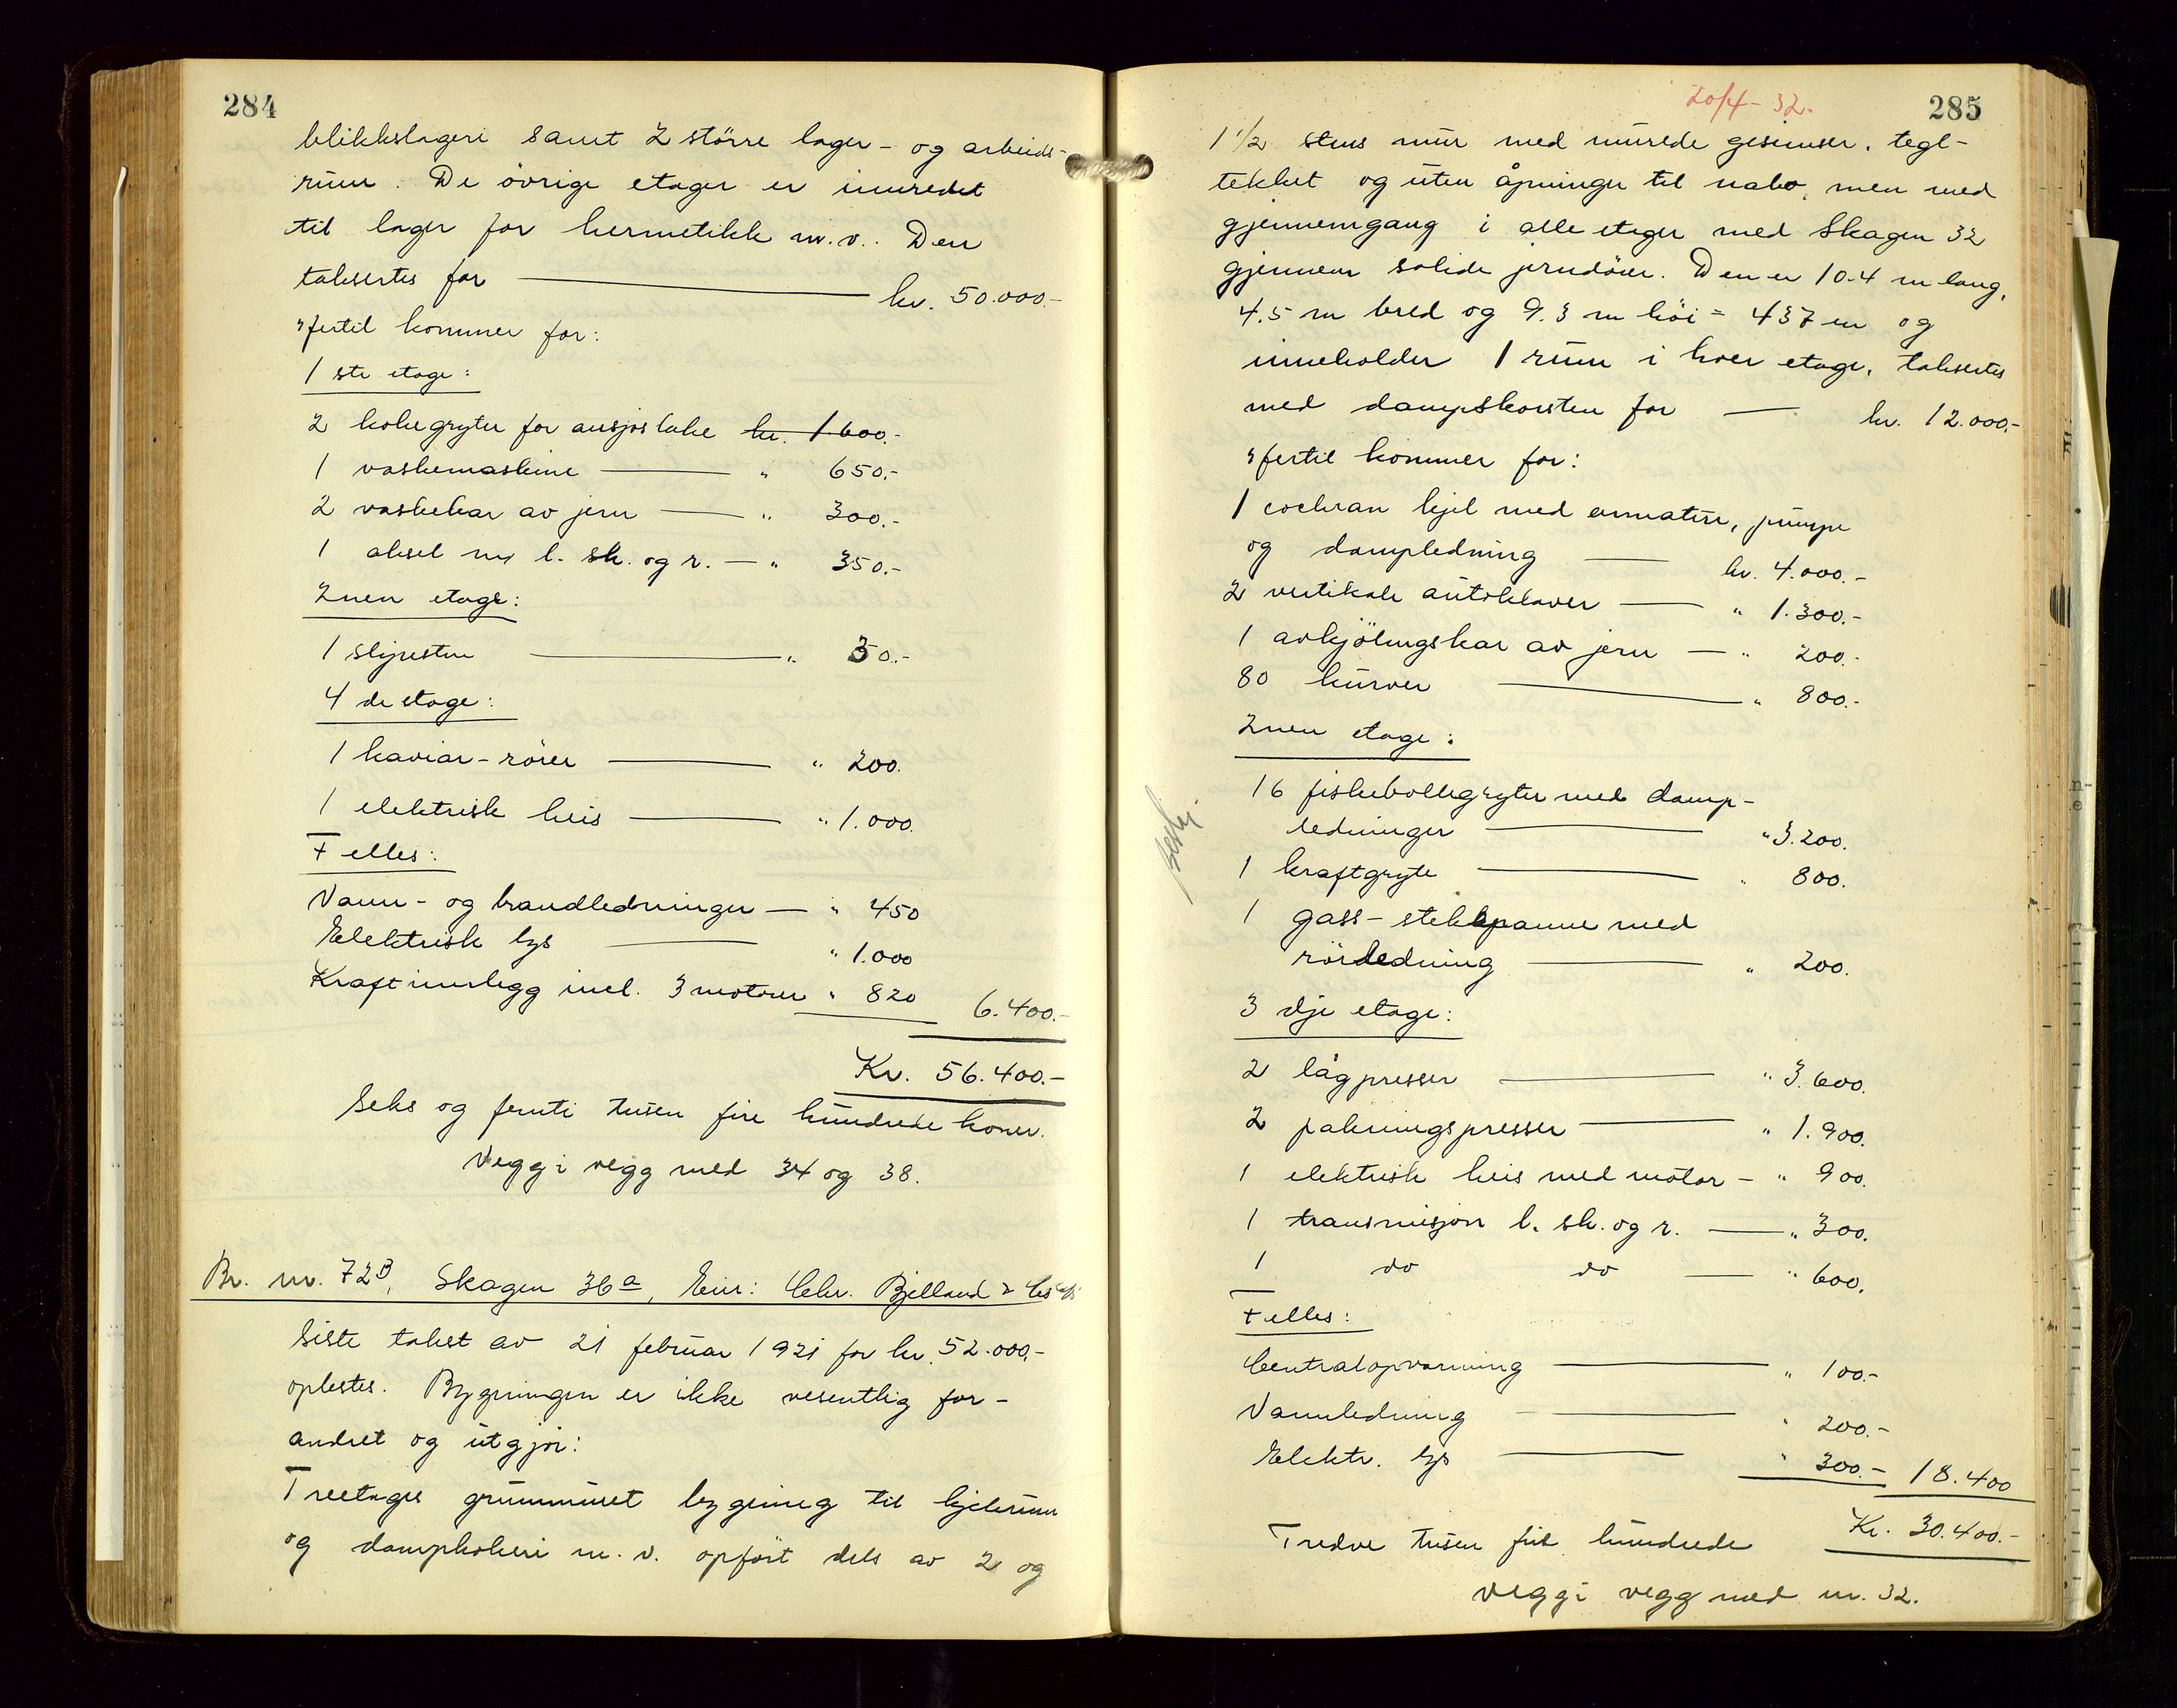 284
blikkslageri samt 2 större lager- og arbeids-
rum. De övrige etager er innredet
til lager for hermetikk m.v. Den
takseres for kr. 50.000.-
Hertil kommer for:
1 ste etage:
2 kokegryter for ansjoslake kr. 1.600.-
1 vaskemaskine " 650.-
2 vaskekar av jern " 300.-
1 aksel m/ l. sk. og r. — " 350.-
2nen etage:
1 slipesten " 30.-
4 de etage:
1 kaviar-rörer " 200.
1 elektrisk heis " 1.000.
Felles:
Vann- og brandledninger — " 450
Elektrisk lys " 1.000
Kraftinnlegg incl. 3 motorer " 820 6.400.-
Kr. 56.400.-
Seks og femti tusen fire hundrede kroner.
Vegg i vegg med 34 og 38.
Br. nr. 72B, Skagen 36a, Eier: Chr. Bjelland & Co A/S
Siste takst av 21 februar 1921 for kr. 52.000,-
oplestes. Bygningen er ikke vesentlig for-
andret og utgjør:
Treetages grunnmuret bygning til kjelerum
og dampkokeri m.v. opført dels av 2 og
20/4-32.
285
1 1/2 stens mur med murede gesimser, tegl-
tekket og uten åpninger til nabo, men med
gjennemgang i alle etager med Skagen 32
gjennem solide jerndører. Den er 10.4 m lang,
4.5 m bred og 9.3 m höi = 437 m og
inneholder 1 rum i hver etage, takseres
med dampskorsten for — kr. 12.000,-
Hertil kommer for:
1 cochran kjel med armatur, pumpe
og dampledning kr. 4.000.-
2 vertikale autoklaver " 1.300.-
1 avkjölingskar av jern — " 200.-
80 kurver " 800.-
2nen etage:
16 fiskebollegryter med damp-
ledninger " 3.200.
1 kraftgryte " 800.
1 gass-stekepanne med
rörledning " 200.
3 dje etage:
2 lågpresser " 3.600.
2 pakningspresser " 1.900.
1 elektrisk heis med motor — " 900.
1 transmisjon l. sk. og r. — " 300.
1 do do — " 600.
Felles:
Centralopvarming " 100.-
Vannledning " 200.-
Elektr. lys " 300.- 18.400
Kr. 30.400.-
Tredve tusen fire hundrede
Vegg i vegg med nr. 32.